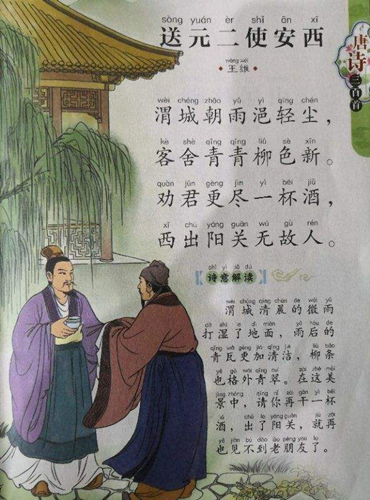 sòng yuán èr shǐ ān xī
送元二使安西
wáng wéi
王维
唐诗三百首
wèi chéng zhāo yǔ yì qīng chén
渭城朝雨浥轻尘，
kè shè qīng qīng liǔ sè xīn
客舍青青柳色新。
quàn jūn gèng jìn yì bēi jiǔ
劝君更尽一杯酒，
xī chū yáng guān wú gù rén
西出阳关无故人。
shī yì jiě dú
诗意解读
渭城清晨的微雨
打湿了地面，雨后的
青瓦更加清洁，柳条
也格外青翠。在这美
景中，请你再干一杯
酒，出了阳关，就再
也见不到老朋友了。